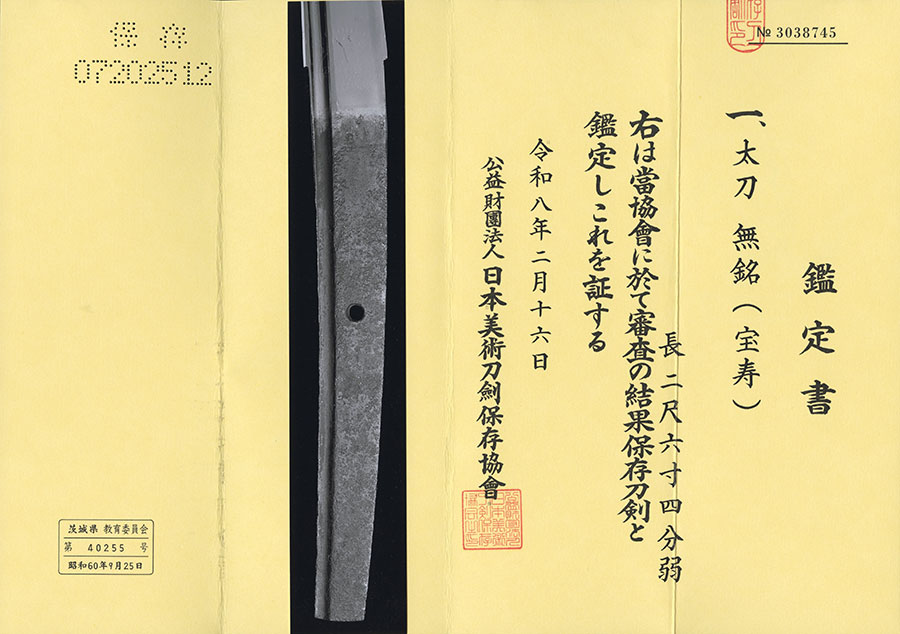 № 3038745
鑑定書
一、太刀 無銘(宝寿)
長二尺六寸四分弱
右は當協會に於て審査の結果保存刀剣と
鑑定しこれを証する
令和八年二月十六日
公益財團法人日本美術刀劍保存協會
保存
07202512
茨城県 教育委員会
第 40255 号
昭和60年9月25日